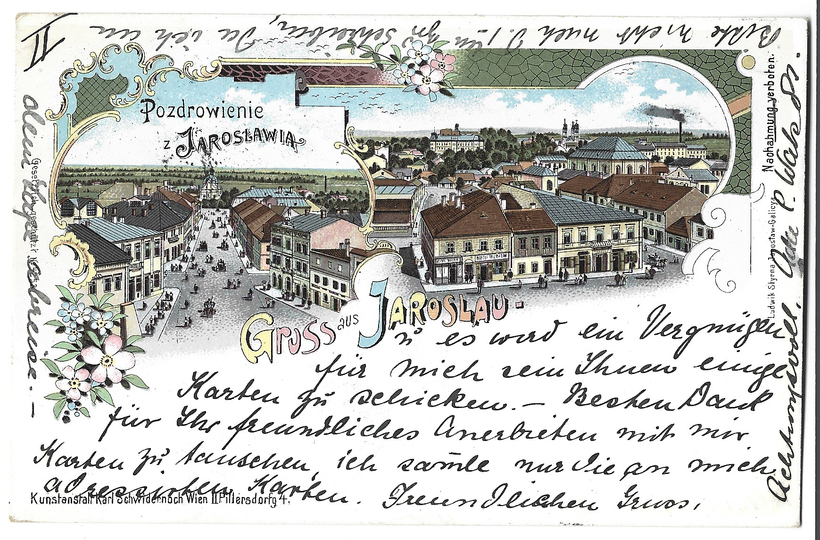 II
Bitte nicht nach J. zu schreiben, da ich am
Pozdrowienie
z JAROSŁAWIA
GRUSS aus JAROSLAU -
u es wird ein Vergnügen
für mich sein Ihnen einige
Karten zu schicken. – Besten Dank
für Ihr freundliches Anerbieten mit mir
Karten zu tauschen, ich samle nur die an mich
adressirten Karten. Freundlichen Gruss,
Kunstanstalt Karl Schwidernoch Wien II Pillersdorfg 4.
Nachahmung verboten.
Ludwik Styrna, Jarosław-Galicya
Achtungsvoll,
abreise. –